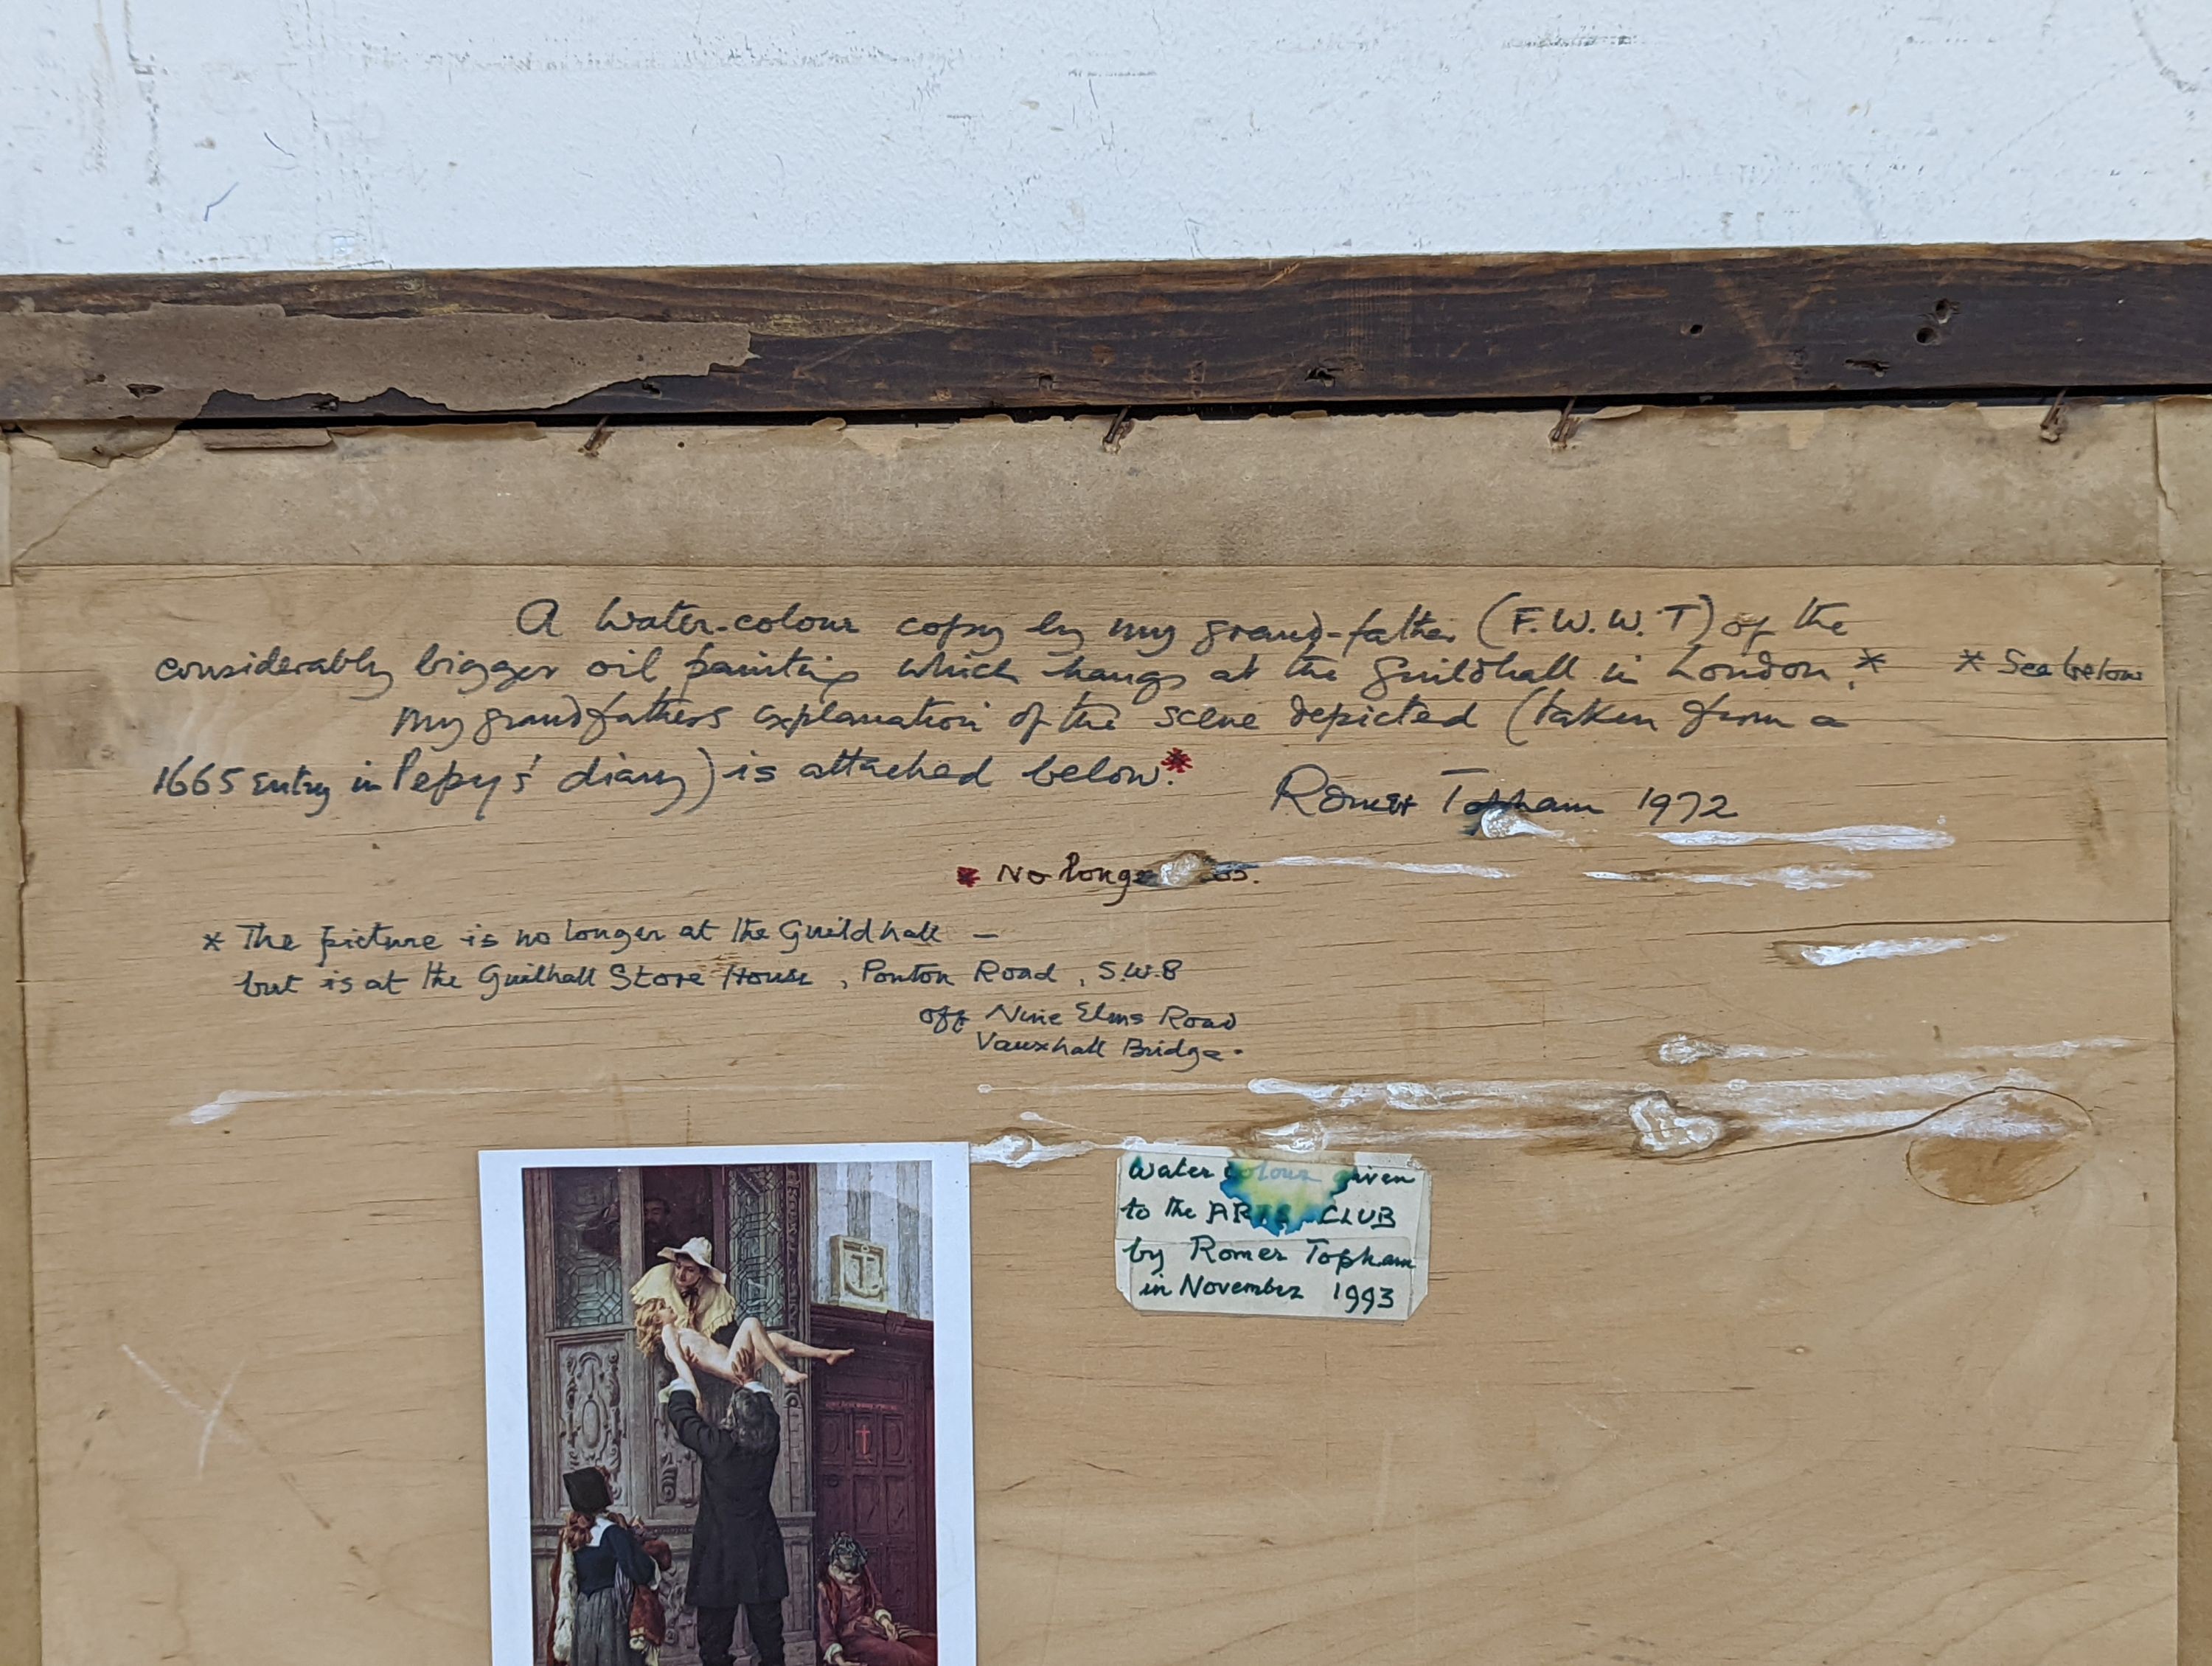 A water-colour copy by my grand-father (F.W.W.T) of the
considerably bigger oil painting which hangs at the Guildhall in London.* * See below
My grandfathers explanation of the scene depicted (taken from a
1665 Entry in Pepy's' diary) is attached below.*
Romer Topham 1972
* No longer
* The picture is no longer at the Guildhall —
but is at the Guilhall Store House, Ponton Road, S.W.8
off Nine Elms Road
Vauxhall Bridge.
Water colour given
to the ARTS CLUB
by Romer Topham
in November 1993